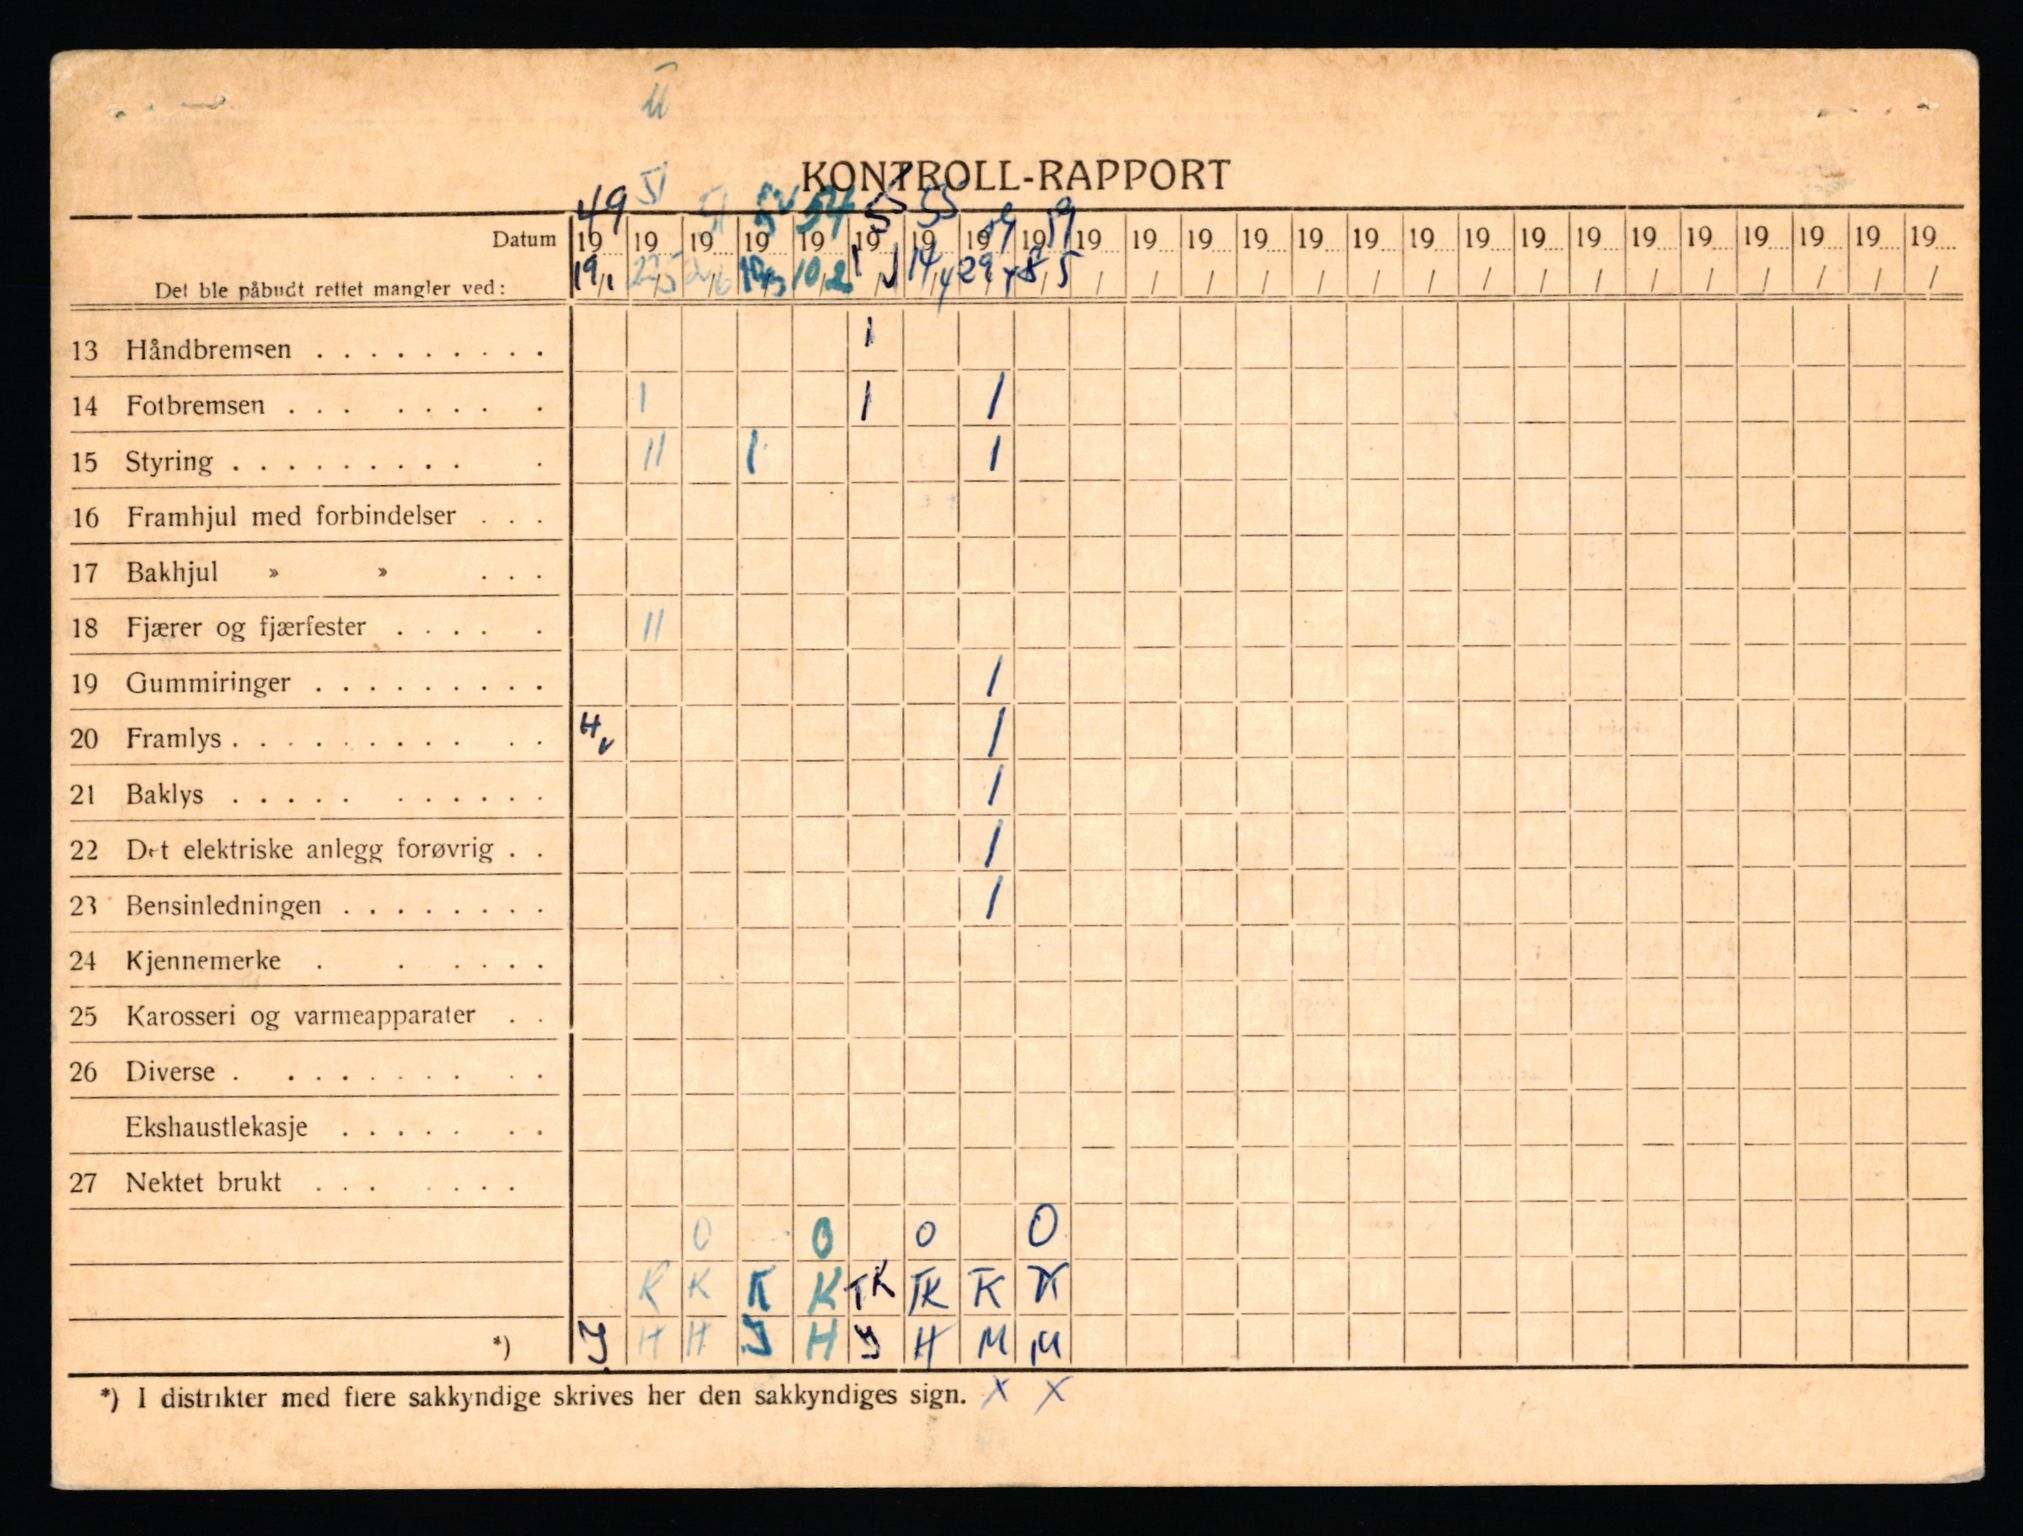 II
KONTROLL-RAPPORT
49 51 51 54 55 55 59 59
Datum 19 19 19 19 19 19 19 19 19 19 19 19 19 19 19 19 19 19 19 19 19 19 19 19 19
Det ble påbudt rettet mangler ved: 19/1 10/2 14/4 29/4 8/5 / / / / / / / / / / / / / / / /
13 Håndbremsen . . . . . . . . . 1
14 Fotbremsen . . . . . . . . 1 1 1
15 Styring . . . . . . . . . . 11 1 1
16 Framhjul med forbindelser . . .
17 Bakhjul » » . . .
18 Fjærer og fjærfester . . . . . 11
19 Gummiringer . . . . . . . . . 1
20 Framlys . . . . . . . . . . . H/v 1
21 Baklys . . . . . . . . . . . 1
22 Det elektriske anlegg forøvrig . . 1
23 Bensinledningen . . . . . . . . 1
24 Kjennemerke . . . . . .
25 Karosseri og varmeapparater . .
26 Diverse . . . . . . . . . .
Ekshaustlekasje . . . . . . .
27 Nektet brukt . . . . . . .
0 0 0 0
K K K K TK TK TK TK
*) J H H J H J H M M
*) I distrikter med flere sakkyndige skrives her den sakkyndiges sign. x x